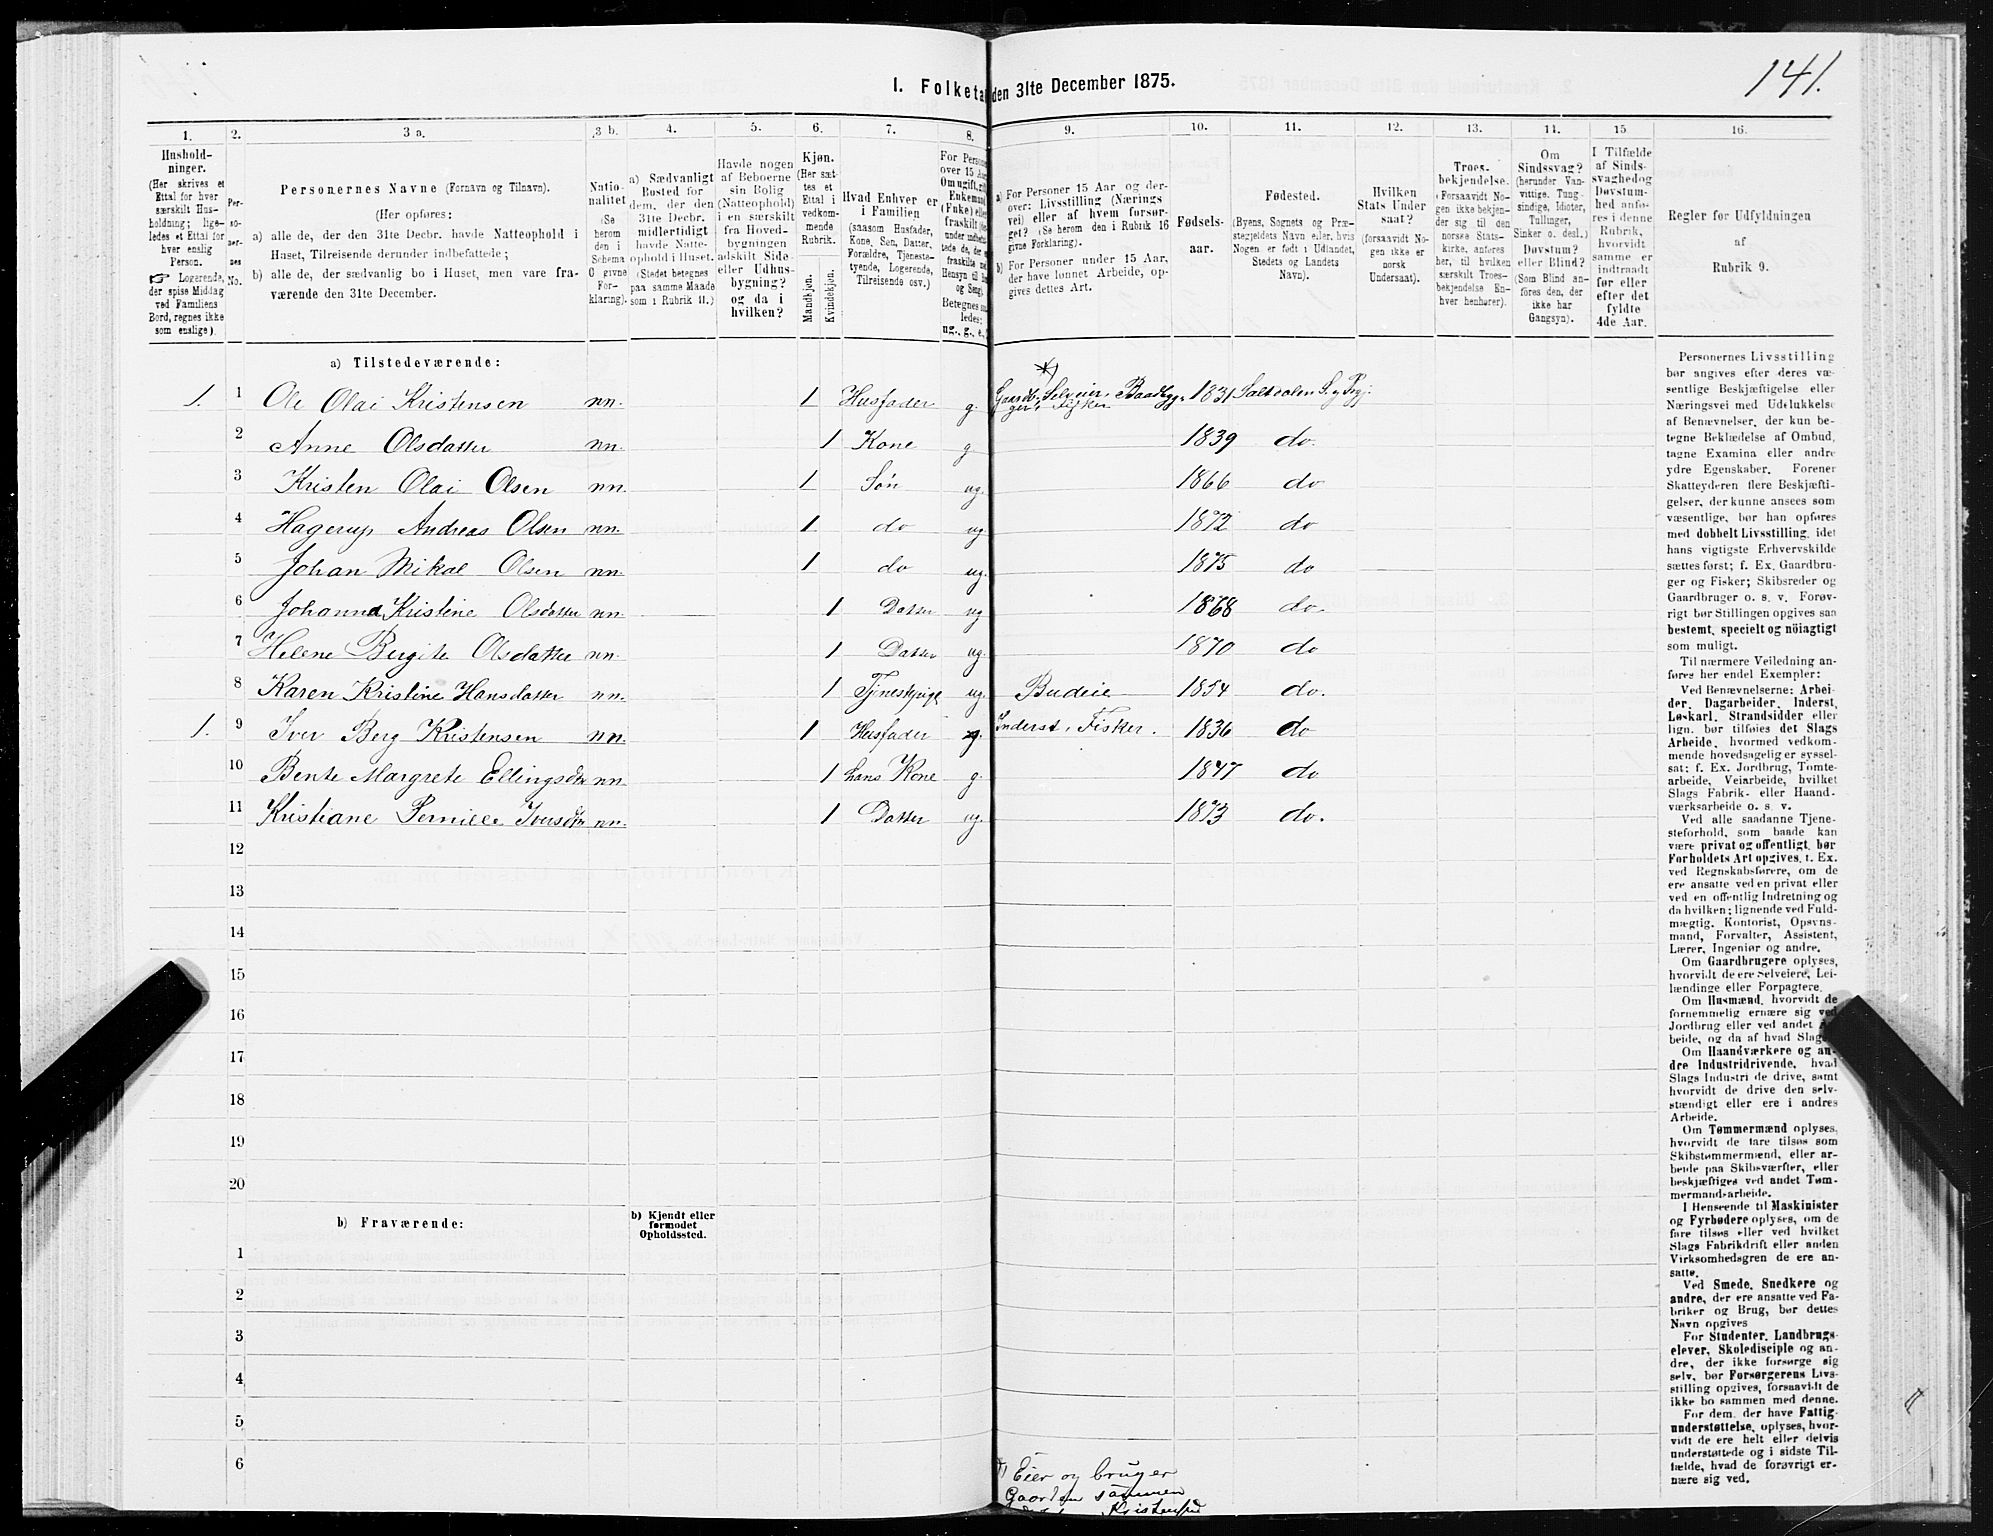 141.
1. Folketa den 31te December 1875.
1. 2. 3 a. 3 b. 4. 5. 6. 7. 8. 9. 10. 11. 12. 13. 14. 15 16.
Hushold-
ninger.
(Her skrives et
Ettal for hver
særskilt Hus-
holdning; lige-
ledes et Ettal for
hver enslig
Person.
☞ Logerende,
der spise Middag
ved Familiens
Bord, regnes ikke
som enslige).
Per-
so-
ner-
nes
No.
Personernes Navne (Fornavn og Tilnavn).
(Her opføres:
a) alle de, der den 31te Decbr. havde Natteophold i
Huset, Tilreisende derunder indbefattede;
b) alle de, der sædvanlig bo i Huset, men vare fra-
værende den 31te December.
Natio-
nalitet
(Se
herom
den i
Schema
G givne
For-
klaring).
a) Sædvanligt
Bosted for
dem, der den
31te Decbr.
midlertidigt
havde Natte-
ophold i Huset.
(Stedet betegnes
paa samme Maade
som i Rubrik 11.)
Havde nogen
af Beboerne
sin Bolig
(Natteophold)
i en særskilt
fra Hoved-
bygningen
adskilt Side-
eller Udhus-
bygning?
og da i
hvilken?
Kjøn.
(Her sæt-
tes et
Ettal i
vedkom-
mende
Rubrik.
Mandkjøn.
Kvindekjøn.
Hvad Enhver er
i Familien
(saasom Husfader,
Kone, Søn, Datter,
Forældre, Tjeneste-
tyende, Logerende,
Tilreisende osv.)
For Persone
over 15 Aa
Om ugift, gif
Enkemand
(Enke) elle
fraskilt
Betegnes
ledes:
ug., g., e.,
a) For Personer 15 Aar og der-
over: Livsstilling (Nærings
vei) eller af hvem forsør-
get? (Se herom den i Rubrik 16
givne Forklaring).
b) For Personer under 15 Aar,
der have lønnet Arbeide, op-
gives dettes Art.
Fødsels-
aar.
Fødested.
(Byens, Sognets og Præ-
stegjeldets Navn eller, hvis
Nogen er født i Udlandet,
Stedets og Landets
Navn).
Hvilken
Stats Under
saat?
(forsaavidt No-
gen ikke er
norsk
Undersaat).
Troes-
bekjendelse.
(Forsaavidt No-
gen ikke bekjen-
der sig til den
norske Stats-
kirke, anføres
her, til hvilken
særskilt Troes-
bekjendelse En-
hver henhører).
Om
Sindssvag?
(herunder Van-
vittige, Tung-
sindige, Idioter,
Tullinger,
Sinker o. desl.)
Døvstum?
eller Blind?
(Som Blind an-
føres den, der
ikke har
Gangsyn).
I Tilfælde
af Sinds-
svaghed og
Døvstum-
hed anfø-
res i denne
Rubrik,
hvorvidt
samme er
indtraadt
før eller
efter det
fyldte
4de Aar.
Regler for Udfyldningen
af
Rubrik 9.
a) Tilstedeværende:
1. 1 Ole Olai Kristensen nn. 1 Husfader g. *) Gaardbr. Selveier, Baadbygger, Fisker 1831 Saltdalen S. og Prgj.
2 Anne Olsdatter nn. 1 Kone g 1839 do.
3 Kristen Olai Olsen nn. 1 Søn ug. 1866 do
4 Hagerup Andreas Olsen nn. 1 do ug. 1872 do
5 Johan Mikal Olsen nn. 1 do ug. 1875 do
6 Johanna Kristine Olsdatter nn. 1 Datter ug 1868 do.
7 Helene Bergite Olsdatter nn. 1 Datter ug. 1870 do
8 Karen Kristine Hansdatter nn. 1 Tjenestepige ug. Budeie 1854 do.
1. 9 Iver Berg Kristensen nn. 1 Husfader g. Inderst, Fisker. 1836 do
10 Bente Margrete Ellingsdtr nn. 1 hans Kone g. 1847 do
11 Kristiane Pernille Iversdtr nn. 1 Datter ug. 1873 do.
12
13
14
15
16
17
18
19
20
b) Fraværende:
b) Kjendt eller
formodet
Opholdssted.
1
2
3
4
5
6
*) Eier og bruger
Gaarden sammen
Kristensen
Personernes Livsstilling
bør angives efter deres væ-
sentlige Beskjæftigelse eller
Næringsvei med Udelukkelse
af Benævnelser, der kun be-
tegne Beklædelse af Ombud,
tagne Examina eller andre
ydre Egenskaber. Forener
Skatteyderen flere Beskjæfti-
gelser, der kunne ansees som
væsentlige, bør han opføres
med dobbelt Livsstilling, idet
hans vigtigste Erhvervskilde
sættes først; f. Ex. Gaardbru-
ger og Fisker; Skibsreder og
Gaardbruger o. s. v. Forøv-
rigt bør Stillingen opgives saa
bestemt, specielt og nöiagtigt
som muligt.
Til nærmere Veiledning an-
føres her endel Exempler:
Ved Benævnelserne: Arbei-
der, Dagarbeider, Inderst,
Løskarl, Strandsidder eller
lign. bør tilføies det Slags
Arbeide, hvormed vedkom-
mende hovedsagelig er syssel-
sat; f. Ex. Jordbrug, Tomte-
arbeide, Veiarbeide, hvilket
Slags Fabrik- eller Haand-
værksarbeide o. s. v.
Ved alle saadanne Tjene-
steforhold, som baade kan
være privat og offentligt, bør
Forholdets Art opgives, t. Ex.
ved Regnskabsførere, om de
ere ansatte ved en privat eller
ved en offentlig Indretning og
da hvilken; lignende ved Fuld-
mægtig, Kontorist, Opsyns-
mand, Forvalter, Assistent,
Lærer, Ingeniør og andre.
Om Gaardbrugere oplyses,
hvorvidt de ere Selveiere, Lei-
lændinge eller Forpagtere.
Om Husmænd, hvorvidt de
fornemmelig ernære sig ved
Jordbrug eller ved andet A
beide, og da af hvad Slags
Om Haandværkere og an-
dre Industridrivende, hvad
Slags Industri de drive, samt
hvorvidt de drive den selv-
stændigt eller ere i andres
Arbeide.
Om Tømmermænd oplyses,
hvorvidt de fare tilsøs som
Skibstømmermænd, eller ar-
beide paa Skibsværfter, eller
beskjæftiges ved andet Tøm-
mermandsarbeide.
I Henseende til Maskinister
og Fyrbødere oplyses, om de
fare tilsøs eller ved hvilket
Slags Fabrikdrift eller anden
Virksomhedsgren de ere an-
satte.
Ved Smede, Snedkere og
andre, der ere ansatte ved Fa-
briker og Brug, bør dettes
Navn opgives
For Studenter, Landbrugs-
elever, Skoledisciple og an-
dre, der ikke forsørge sig
selv, bør Forsørgerens Livs-
stilling opgives, forsaavidt de
ikke bo sammen med denne.
For dem, der have Fattig-
understøttelse, oplyses, hvor-
vidt de ere helt eller delvis
understøttede og i sidste Til-
fælde, hvad de forøvrigt er-
nære sig ved.